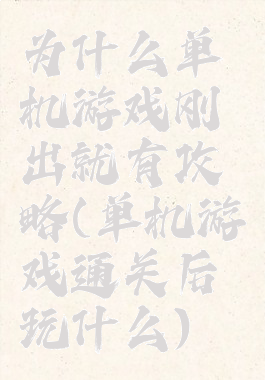 为什么单
机游戏刚
出就有攻
略(单机游
戏通关后
玩什么)